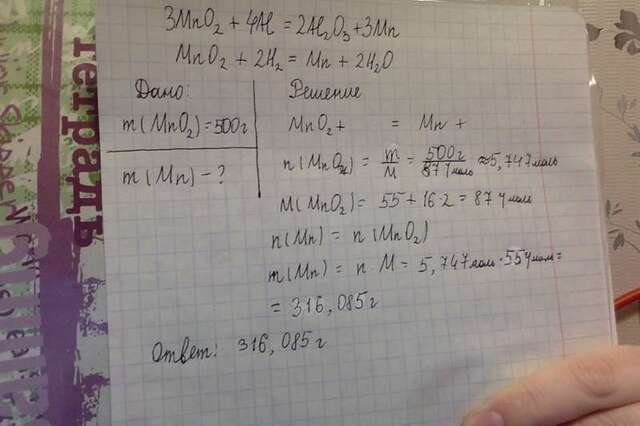 3MnO₂ + 4Al = 2Al₂O₃ + 3Mn
MnO₂ + 2H₂ = Mn + 2H₂O
Дано:
m(MnO₂) = 500г
m(Mn) - ?
Решение
MnO₂ + = Mn +
n(MnO₂) = m/M = 500г/87г/моль ≈ 5,747моль
M(MnO₂) = 55 + 16·2 = 87 г/моль
n(Mn) = n(MnO₂)
m(Mn) = n·M = 5,747моль·55г/моль =
= 316,085г
Ответ: 316,085г
тетрадь